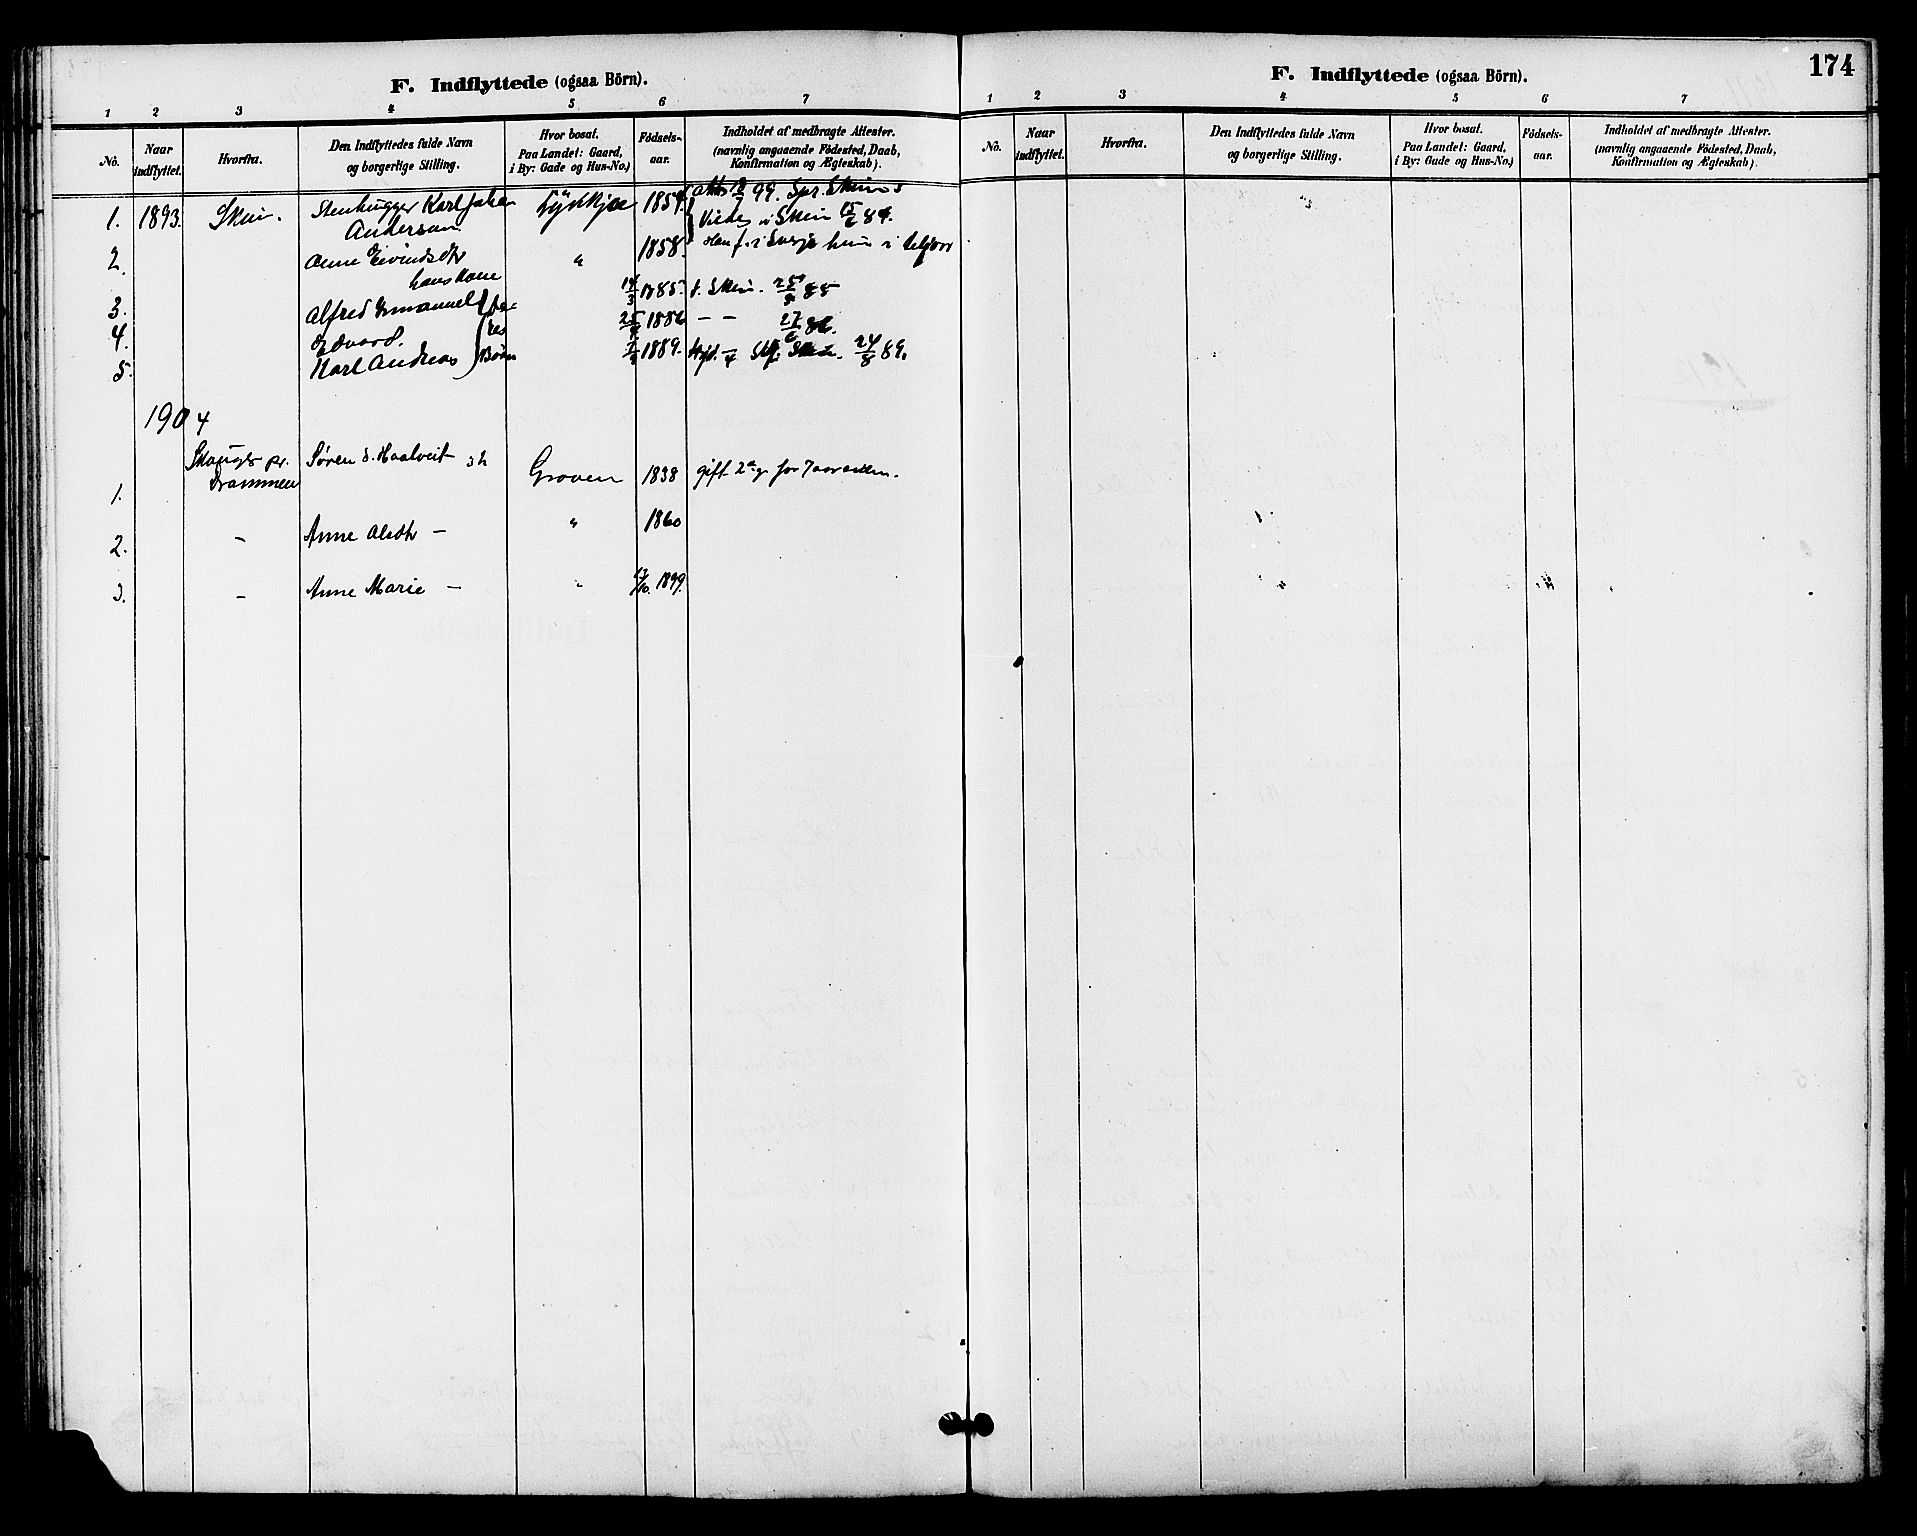 F. Indflyttede (ogsaa Börn).
1 2 3 4 5 6 7
No. Naar indflyttet. Hvorfra. Den Indflyttedes fulde Navn og borgerlige Stilling. Hvor bosat. Paa Landet: Gaard, i By: Gade og Hus-No.) Födsels-aar. Indholdet af medbragte Attester. (navnlig angaaende Födested, Daab, Konfirmation og Ægteskab).
1. 1893. Skien. Stenhugger Karl Johan 1854. 99. Spr. Skiens
Anderson Viede i Skien 15/6 84.
2. Anne Eivindsdtr " 1858. Han f. i Sverje hun i
hans Kone
3. Alfred Emanuel 1885. f. Skien. 85
4. Edvard. 1886 — — 86.
5. Karl Andreas Børn 1889. Skien. 24/8 89.
1904
1. Skouger pr. Drammen Søren S. Haatveit Groven 1838 gift 2. g. for 7 aar siden.
2. — Anne — " 1860
3. — Anne Marie — " 1899.
174
F. Indflyttede (ogsaa Börn).
1 2 3 4 5 6 7
No. Naar indflyttet. Hvorfra. Den Indflyttedes fulde Navn og borgerlige Stilling. Hvor bosat. Paa Landet: Gaard, i By: Gade og Hus-No.) Födsels-aar. Indholdet af medbragte Attester. (navnlig angaaende Födested, Daab, Konfirmation og Ægteskab).